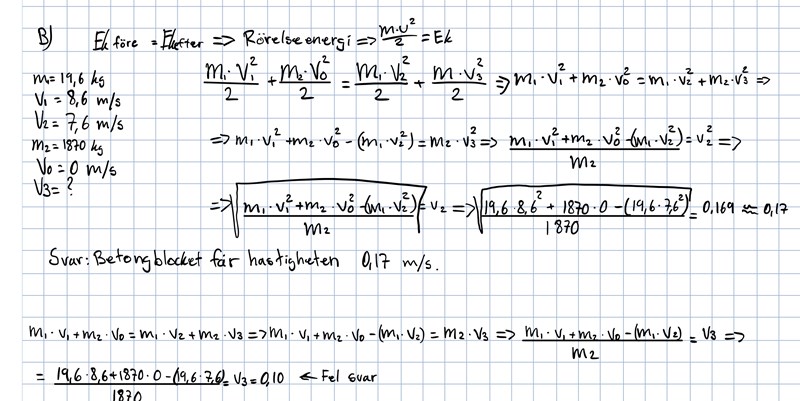 B) Ek före = Ekefter => Rörelseenergi => m·v²/2 = Ek
m₁ = 19,6 kg
V₁ = 8,6 m/s
V₂ = 7,6 m/s
m₂ = 1870 kg
V₀ = 0 m/s
V₃ = ?
m₁·V₁²/2 + m₂·V₀²/2 = m₁·V₂²/2 + m·V₃²/2 => m₁·V₁² + m₂·V₀² = m₁·V₂² + m₂·V₃² =>
=> m₁·V₁² + m₂·V₀² - (m₁·V₂²) = m₂·V₃² => (m₁·V₁² + m₂·V₀² - (m₁·V₂²))/m₂ = V₂² =>
=> √((m₁·V₁² + m₂·V₀² - (m₁·V₂²))/m₂) = V₂ => √((19,6·8,6² + 1870·0 - (19,6·7,6²))/1870) = 0,169 ≈ 0,17
Svar: Betongblocket får hastigheten 0,17 m/s.
m₁·V₁ + m₂·V₀ = m₁·V₂ + m₂·V₃ => m₁·V₁ + m₂·V₀ - (m₁·V₂) = m₂·V₃ => (m₁·V₁ + m₂·V₀ - (m₁·V₂))/m₂ = V₃ =>
= (19,6·8,6 + 1870·0 - (19,6·7,6))/1870 = V₃ = 0,10 ← Fel svar